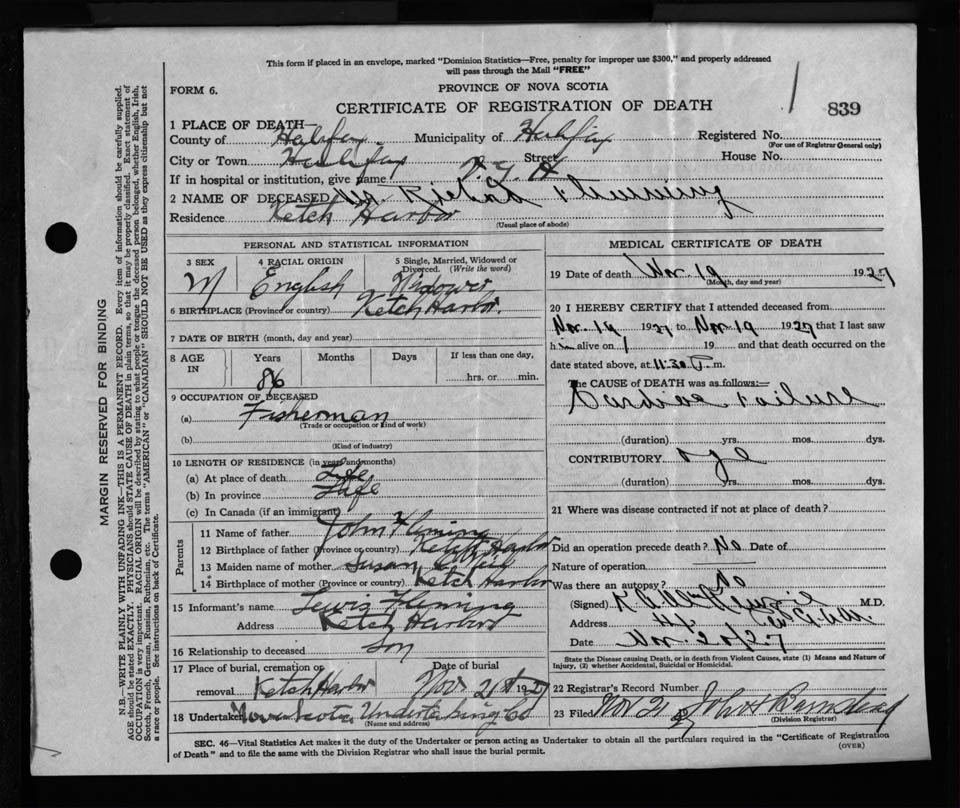 This form if placed in an envelope, marked "Dominion Statistics—Free, penalty for improper use $300," and properly addressed
will pass through the Mail "FREE"
FORM 6.
PROVINCE OF NOVA SCOTIA
CERTIFICATE OF REGISTRATION OF DEATH
839
1 PLACE OF DEATH—
County of Halifax Municipality of Halifax Registered No.
(For use of Registrar General only)
City or Town Halifax Street House No.
If in hospital or institution, give name V. G. H
2 NAME OF DECEASED Fleming
Residence Ketch Harbor
(Usual place of abode)
PERSONAL AND STATISTICAL INFORMATION
3 SEX 4 RACIAL ORIGIN 5 Single, Married, Widowed or
Divorced. (Write the word)
M English Widower
6 BIRTHPLACE (Province or country) Ketch Harbor.
7 DATE OF BIRTH (month, day and year)
8 AGE IN Years Months Days If less than one day,
86 hrs. or min.
9 OCCUPATION OF DECEASED
(a) Fisherman
(Trade or occupation or kind of work)
(b)
(Kind of industry)
10 LENGTH OF RESIDENCE (in years and months)
(a) At place of death Life
(b) In province Life
(c) In Canada (if an immigrant)
Parents
11 Name of father John Fleming
12 Birthplace of father (Province or country) Ketch Harbor
13 Maiden name of mother Susan
14 Birthplace of mother (Province or country) Ketch Harbor
15 Informant's name Lewis Fleming
Address Ketch Harbor
16 Relationship to deceased Son
17 Place of burial, cremation or Date of burial
removal Ketch Harbor Nov 21st 1927
18 Undertaker Nova Scotia Undertaking Co
(Name and address)
MEDICAL CERTIFICATE OF DEATH
19 Date of death Nov. 19 1927
(Month, day and year)
20 I HEREBY CERTIFY that I attended deceased from
Nov. 19 1927 to Nov 19 1927 that I last saw
him alive on 19 and that death occurred on the
date stated above, at 11.30 P. m.
The CAUSE of DEATH was as follows:—
Cardiac Failure
(duration) yrs. mos. dys.
CONTRIBUTORY Age
(duration) yrs. mos. dys.
21 Where was disease contracted if not at place of death?
Did an operation precede death? No Date of
Nature of operation
Was there an autopsy? No
(Signed) M.D.
Address
Date Nov. 20/27
State the Disease causing Death, or in death from Violent Causes, state (1) Means and Nature of
Injury, (2) whether Accidental, Suicidal or Homicidal.
22 Registrar's Record Number
23 Filed Nov 21 27 John H Barnstead
(Division Registrar)
SEC. 46—Vital Statistics Act makes it the duty of the Undertaker or person acting as Undertaker to obtain all the particulars required in the "Certificate of Registration
of Death" and to file the same with the Division Registrar who shall issue the burial permit.
(OVER)
MARGIN RESERVED FOR BINDING
N.B.—WRITE PLAINLY WITH UNFADING INK—THIS IS A PERMANENT RECORD. Every item of information should be carefully supplied.
AGE should be stated EXACTLY. PHYSICIANS should STATE CAUSE OF DEATH in plain terms, so that it may be properly classified. Exact statement of
OCCUPATION is very important. RACIAL ORIGIN will be described by stating to what people or tongue the deceased person belonged, whether English, Irish,
Scotch, French, German, Russian, Ruthenian, etc. The terms "AMERICAN" or "CANADIAN" SHOULD NOT BE USED as they express citizenship but not
a race or people. See instructions on back of Certificate.